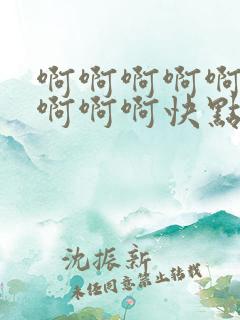 啊啊啊啊啊
啊啊啊快點
沈振新
未经同意禁止转载